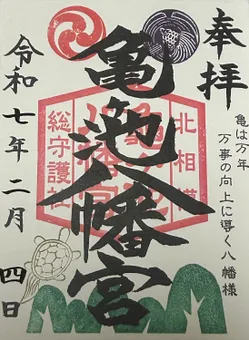 奉拝
亀は万年
万事の向上に導く八幡様
北相模
亀ヶ池
八幡宮
総守護社
亀ヶ池八幡宮
令和七年二月四日